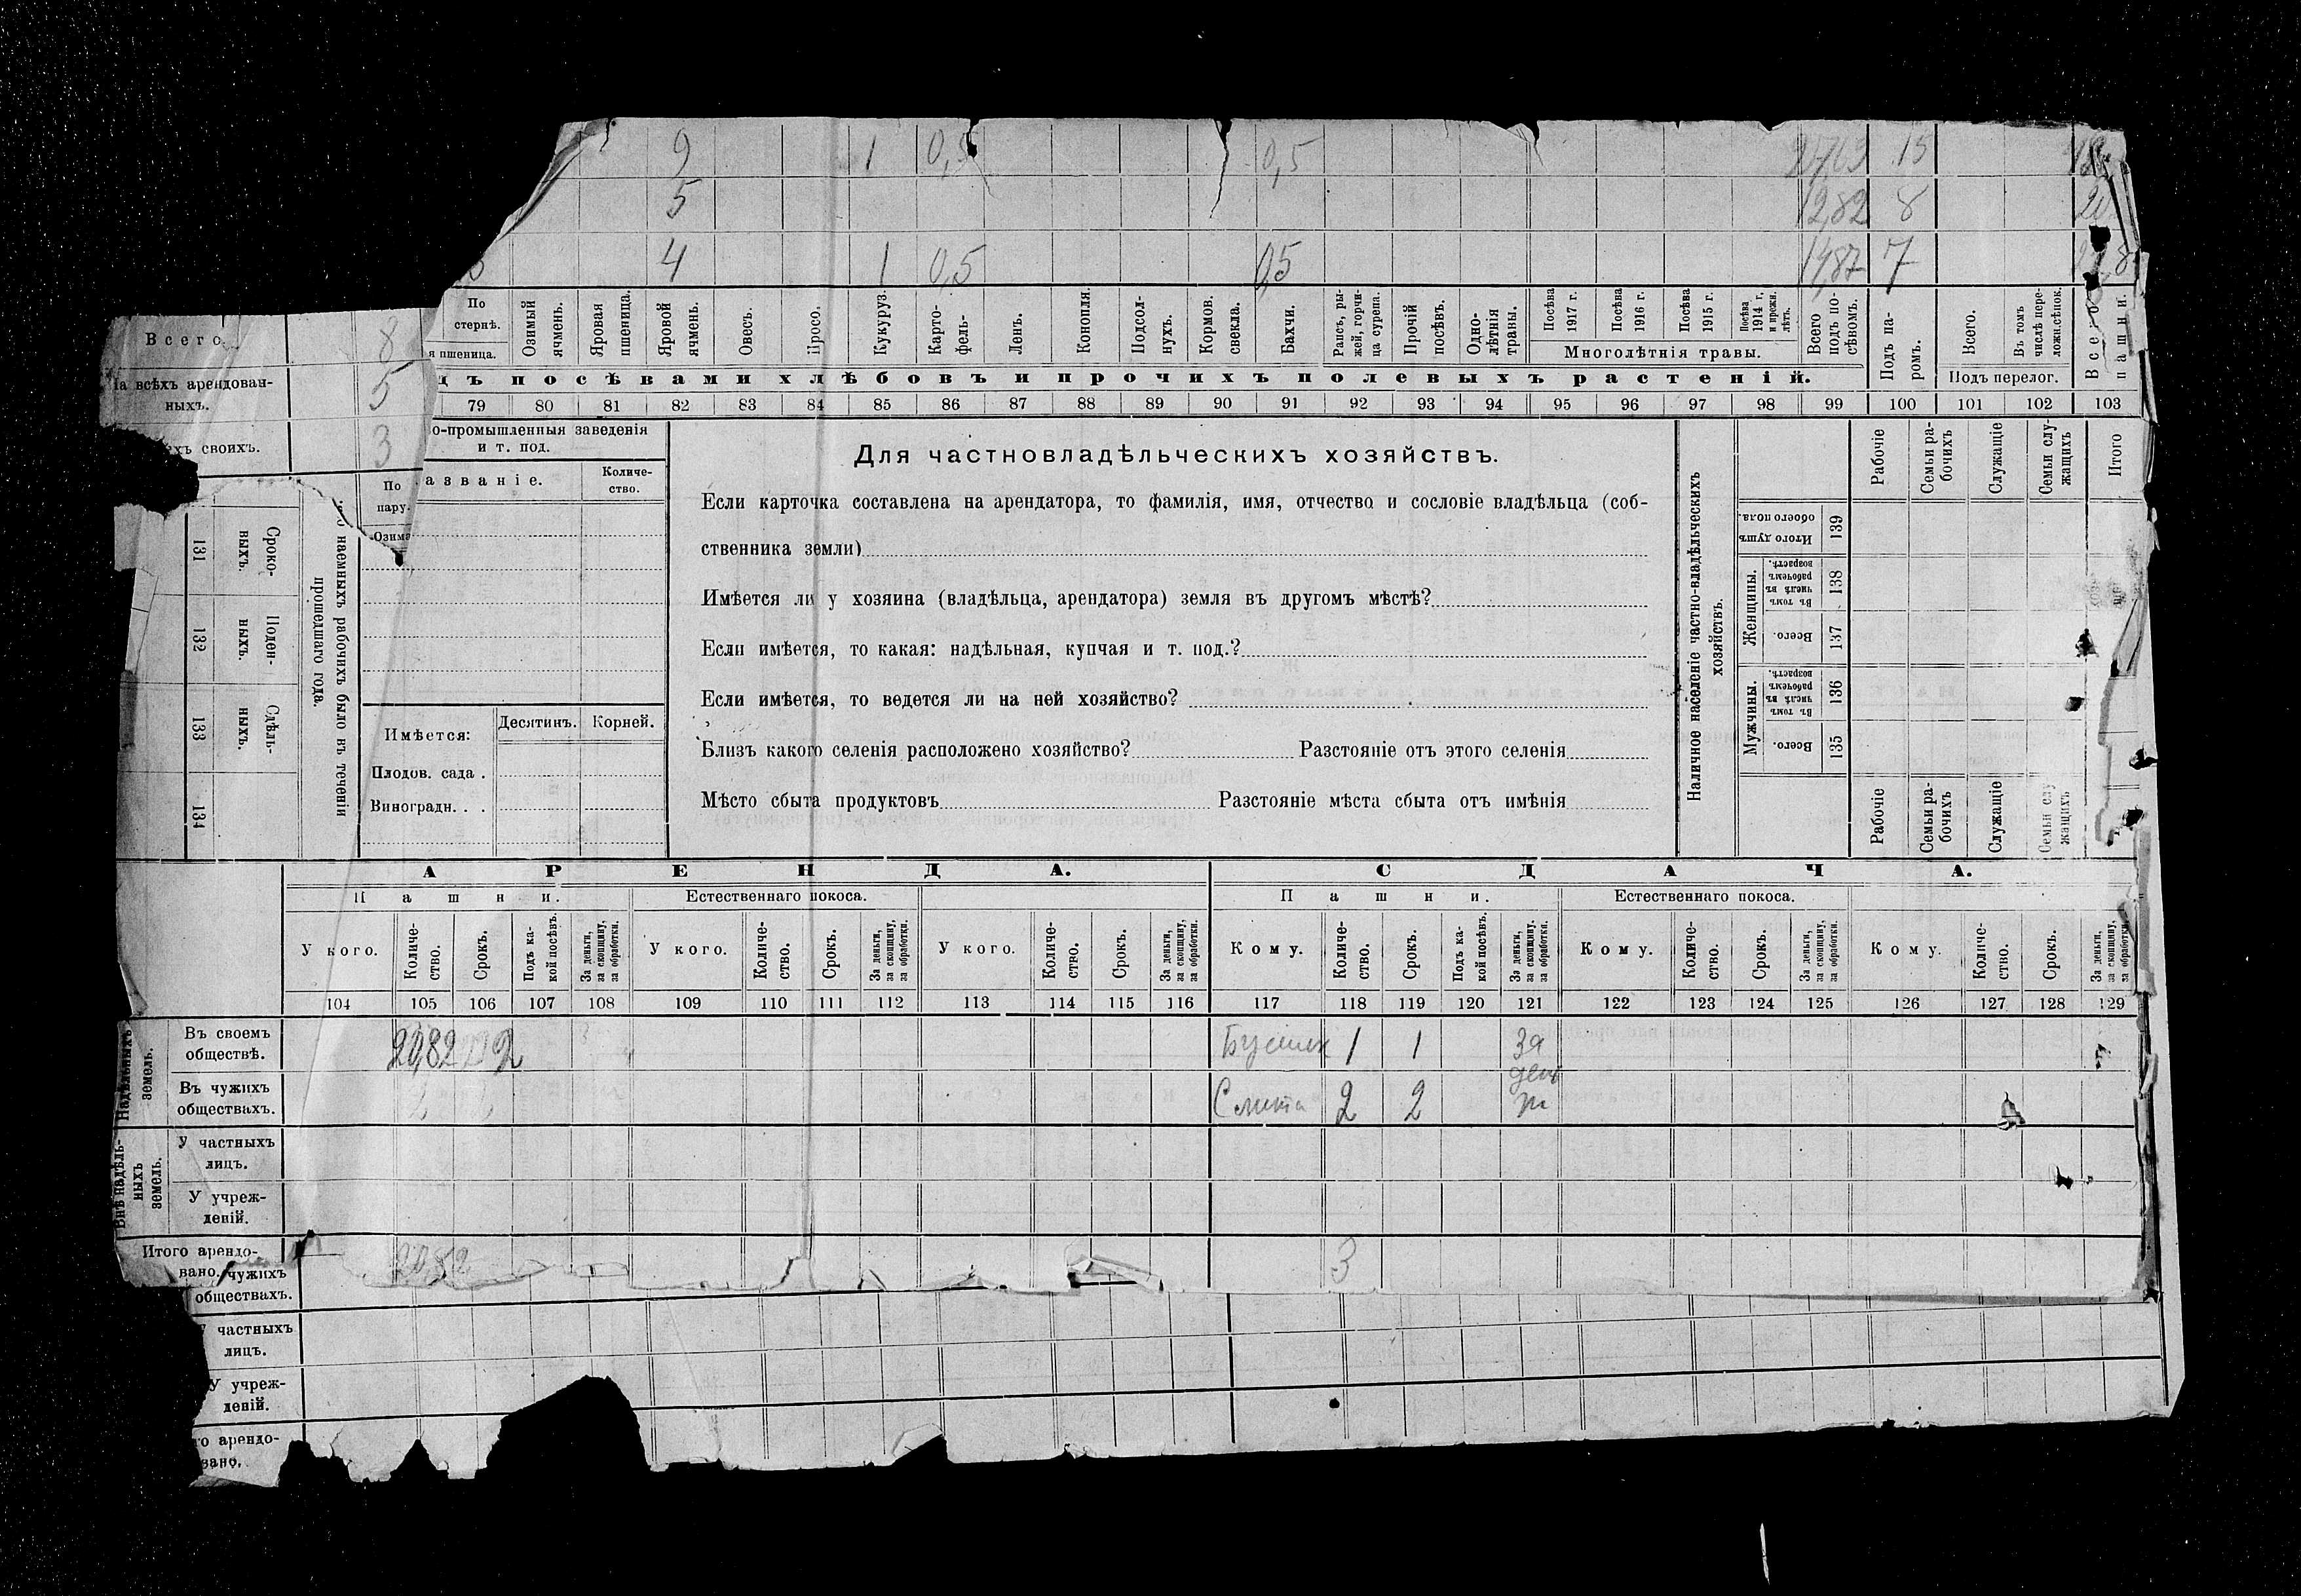 9 1 0,5 0,5 15
5 12,82 8
4 1 0,5 0,5 14,87 7
Всего 8
На всѣхъ арендован-
ныхъ. 5
своихъ. 3
По
стернѣ.
я пшеница.
Озимый
ячмень.
Яровая
пшеница.
Яровой
ячмень.
Овесъ.
Просо.
Кукуруз.
Карто-
фель-
Ленъ.
Конопля.
Подсол-
нухъ.
Кормов.
свекла.
Бахчи.
Рапсъ, ры-
жей, горчи-
ца сурепа.
Прочій
посѣвъ.
Одно-
лѣтнія
травы.
Посѣва
1917 г.
Посѣва
1916 г.
Посѣва
1915 г.
Посѣва
1914 г,
и прежн.
лѣтъ.
Многолѣтнія травы.
Всего
подъ по-
сѣвомъ.
Подъ па-
ромъ.
Всего.
Въ томъ
числѣ пере-
ложн.сѣнок.
Подъ перелог.
Всего
пашни.
дъ посѣвами хлѣбовъ и прочихъ полевыхъ растеній.
79 80 81 82 83 84 85 86 87 88 89 90 91 92 93 94 95 96 97 98 99 100 101 102 103
По
пару.
Озима
о-промышленныя заведенія
и т. под.
азваніе.
Количе-
ство.
Имѣется:
Десятинъ.
Корней.
Плодов. сада .
Виноградн. . .
наемныхъ рабочихъ было въ теченіи
прошедшаго года.
Сроко-
ныхъ.
131
Поден-
ныхъ.
132
Сдѣль-
ныхъ.
133
134
Для частновладѣльческихъ хозяйствъ.
Если карточка составлена на арендатора, то фамилія, имя, отчество и сословіе владѣльца (соб-
ственника земли)
Имѣется ли у хозяина (владѣльца, арендатора) земля въ другомъ мѣстѣ?
Если имѣется, то какая: надѣльная, купчая и т. под.?
Если имѣется, то ведется ли на ней хозяйство?
Близъ какого селенія расположено хозяйство? Разстояніе отъ этого селенія
Мѣсто сбыта продуктовъ Разстояніе мѣста сбыта отъ имѣнія
Наличное населеніе частно-владѣльческихъ
хозяйствъ.
Рабочіе
Семьи ра-
бочихъ
Служащіе
Семьи слу-
жащихъ
Итого
Итого душъ
обоего пола.
139
Женщины.
Въ томъ
числѣ въ
рабочемъ
возрастѣ.
138
Всего.
137
Мужчины.
Въ томъ
числѣ въ
рабочемъ
возрастѣ.
136
Всего.
135
Рабочіе
Семьи ра-
бочихъ
Служащіе
Семьи слу-
жащихъ
АРЕНДА. СДАЧА.
Пашни. Естественнаго покоса. Пашни. Естественнаго покоса.
У кого.
Количе-
ство.
Срокъ.
Подъ ка-
кой посѣвъ.
За деньги,
за скопщину,
за обработки.
У кого.
Количе-
ство.
Срокъ.
За деньги,
за скопщину,
за обработки.
У кого.
Количе-
ство.
Срокъ.
За деньги,
за скопщину,
за обработки.
Кому.
Количе-
ство.
Срокъ.
Подъ ка-
кой посѣвъ.
За деньги,
за скопщину,
за обработки.
Кому.
Количе-
ство.
Срокъ.
За деньги,
за скопщину,
за обработки.
Кому.
Количе-
ство.
Срокъ.
За деньги,
за скопщину,
за обработки.
104 105 106 107 108 109 110 111 112 113 114 115 116 117 118 119 120 121 122 123 124 125 126 127 128 129
Надѣльныхъ
земель.
Въ своемъ
обществѣ.
20,82 2 1 1 За
Въ чужихъ
обществахъ.
2 2
Внѣ надѣль-
ныхъ
земель.
У частныхъ
лицъ.
У учреж-
деній.
Итого арендо-
вано. 3
чужихъ
обществахъ.
частныхъ
лицъ.
У учреж-
деній.
го арендо-
вано.